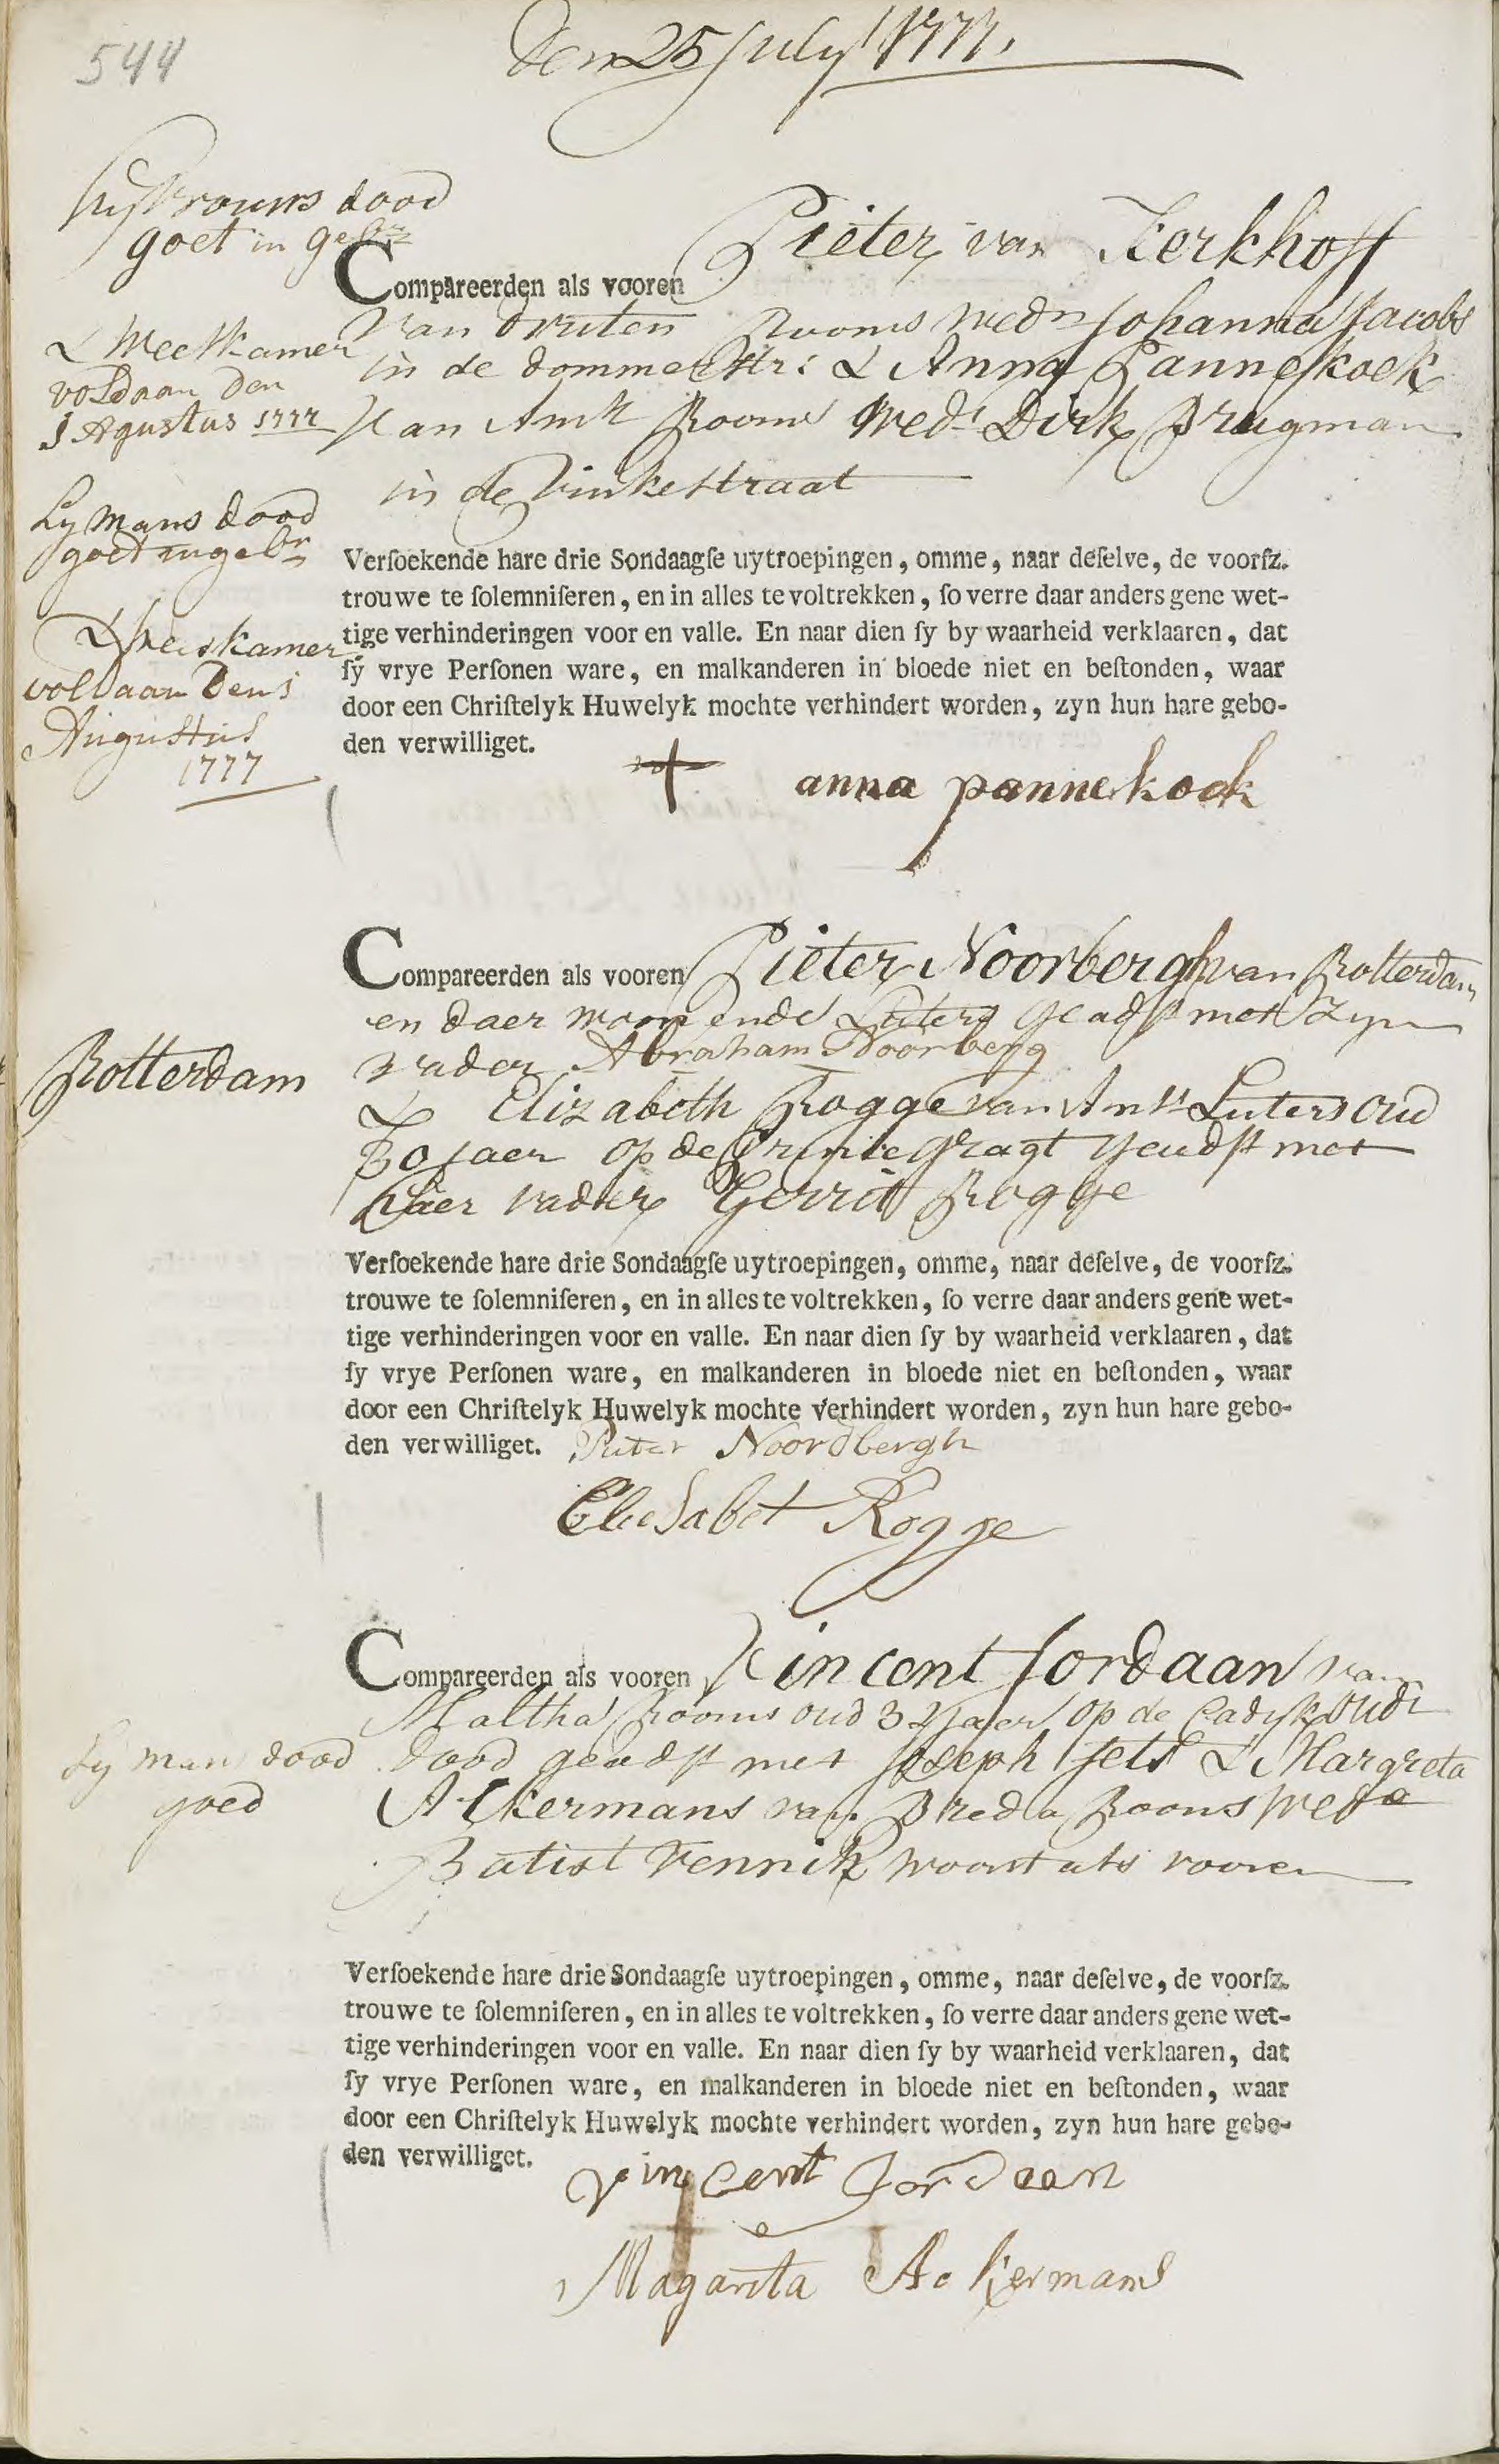 544
Den 25 July 1777.
hy vrouws dood
goet in gebr
Compareerden als vooren Pieter van Kerkhoff
van Druten Rooms wedr Johanna Jacobs
in de dommerstr: & Anna Pannekoek
van Amst Rooms Wede Dirk Brugman
in de Vinkestraat
& Weeskamer
voldaan den
1 Agustus 1777
Sy mans dood
goed ingebr
& Weeskamer
voldaan den 1
Augustus
1777
Versoekende hare drie Sondaagse uytroepingen, omme, naar deselve, de voorsz.
trouwe te solemniseren, en in alles te voltrekken, so verre daar anders gene wet-
tige verhinderingen voor en valle. En naar dien sy by waarheid verklaaren, dat
sy vrye Personen ware, en malkanderen in bloede niet en bestonden, waar
door een Christelyk Huwelyk mochte verhindert worden, zyn hun hare gebo-
den verwilliget.
anna pannekoek
Compareerden als vooren Pieter Noorbergh van Rotterdam
en daer woonende Luters geadst met zyn
vader Abraham Noorberg
Rotterdam
& Elizabeth Rogge van Amst Luters oud
30 jaer op de Prinsegragt geadst met
haer vader Gerrit Rogge
Versoekende hare drie Sondaagse uytroepingen, omme, naar deselve, de voorsz.
trouwe te solemniseren, en in alles te voltrekken, so verre daar anders gene wet-
tige verhinderingen voor en valle. En naar dien sy by waarheid verklaaren, dat
sy vrye Personen ware, en malkanderen in bloede niet en bestonden, waar
door een Christelyk Huwelyk mochte verhindert worden, zyn hun hare gebo-
den verwilliget. Pieter Noordbergh
Elesabet Rogge
Compareerden als vooren Vincent Jordaan van
Maltha Rooms oud 32 jaer op de Cadyk oudr
dood geadst met Joseph Jets & Margreta
Ackermans van Breda Rooms Wede
Batist Vennik woont als vooren
Sy man dood
goed
Versoekende hare drie Sondaagse uytroepingen, omme, naar deselve, de voorsz.
trouwe te solemniseren, en in alles te voltrekken, so verre daar anders gene wet-
tige verhinderingen voor en valle. En naar dien sy by waarheid verklaaren, dat
sy vrye Personen ware, en malkanderen in bloede niet en bestonden, waar
door een Christelyk Huwelyk mochte verhindert worden, zyn hun hare gebo-
den verwilliget.
vincent Jordaan
Magarita Ackermans